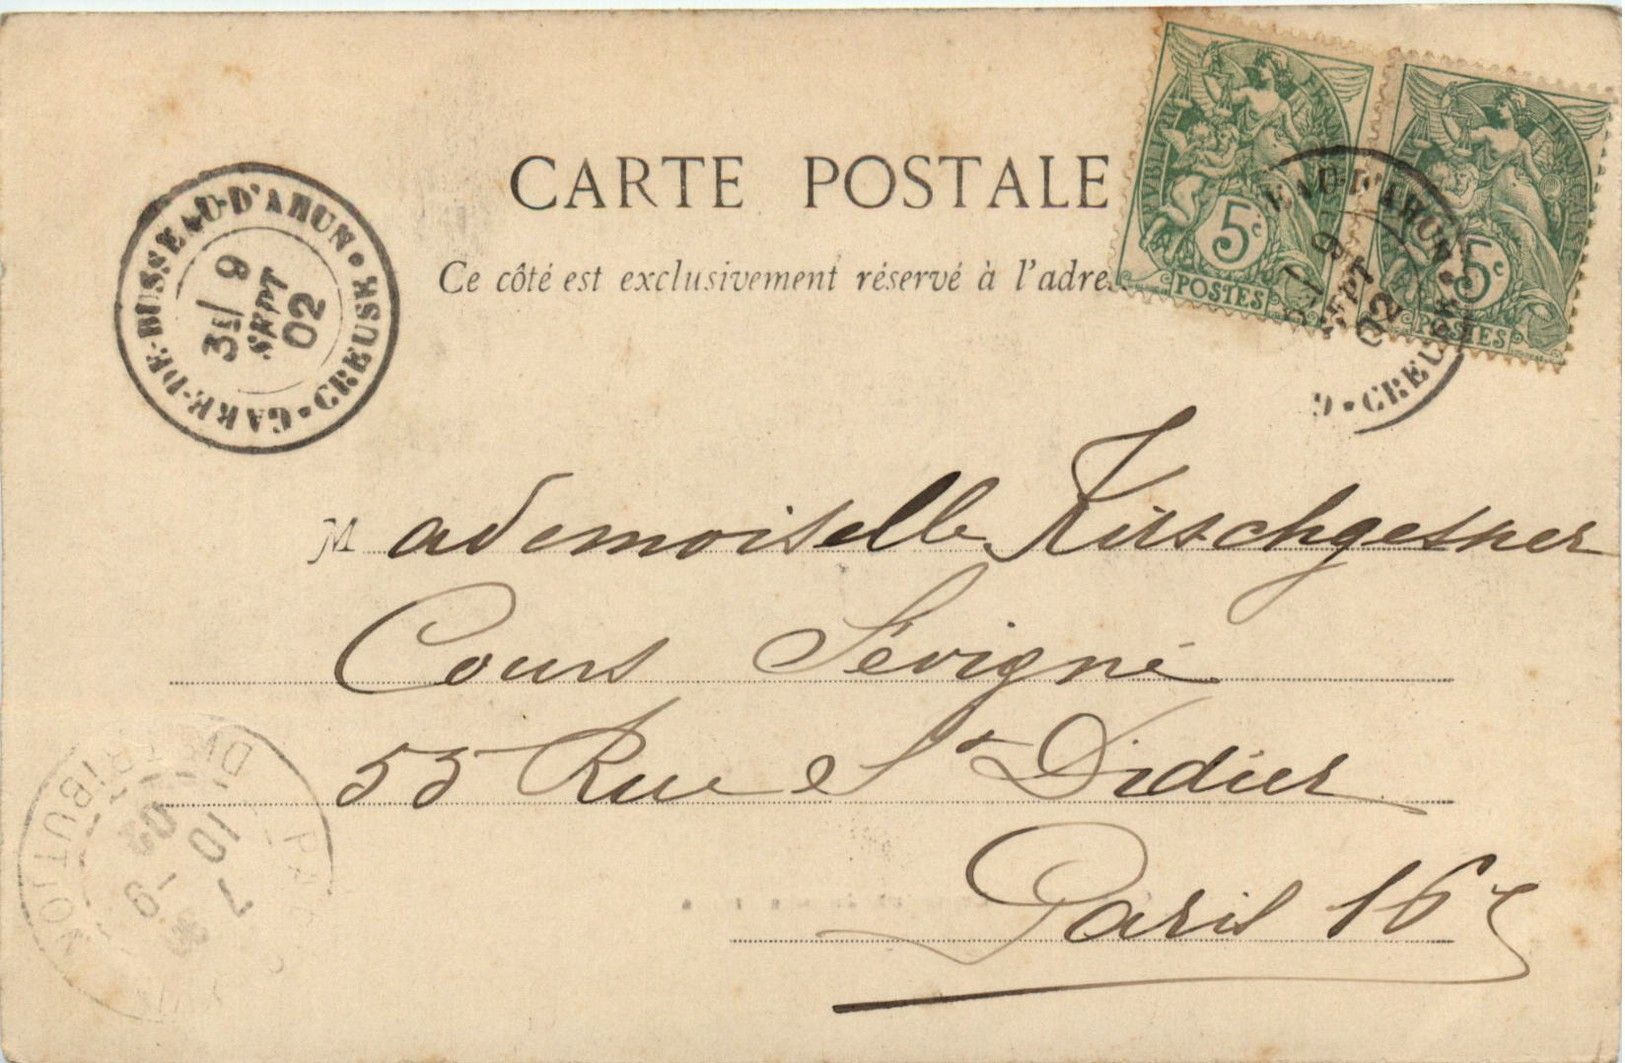 CARTE POSTALE
Ce côté est exclusivement réservé à l'adre
GARE-DE-BUSSEAU-D'AHUN • CREUSE
3E/ 9
SEPT
02
RÉPUBLIQUE FRANÇAISE
5c
POSTES
5c
POSTES
EAU-D'AHUN • CREUSE
9
SEPT
02
Mademoiselle Kirschgesner
Cours Sévigné
55 Rue St Didier
Paris 16e
DISTRIBUTION
7
10 - 9
02